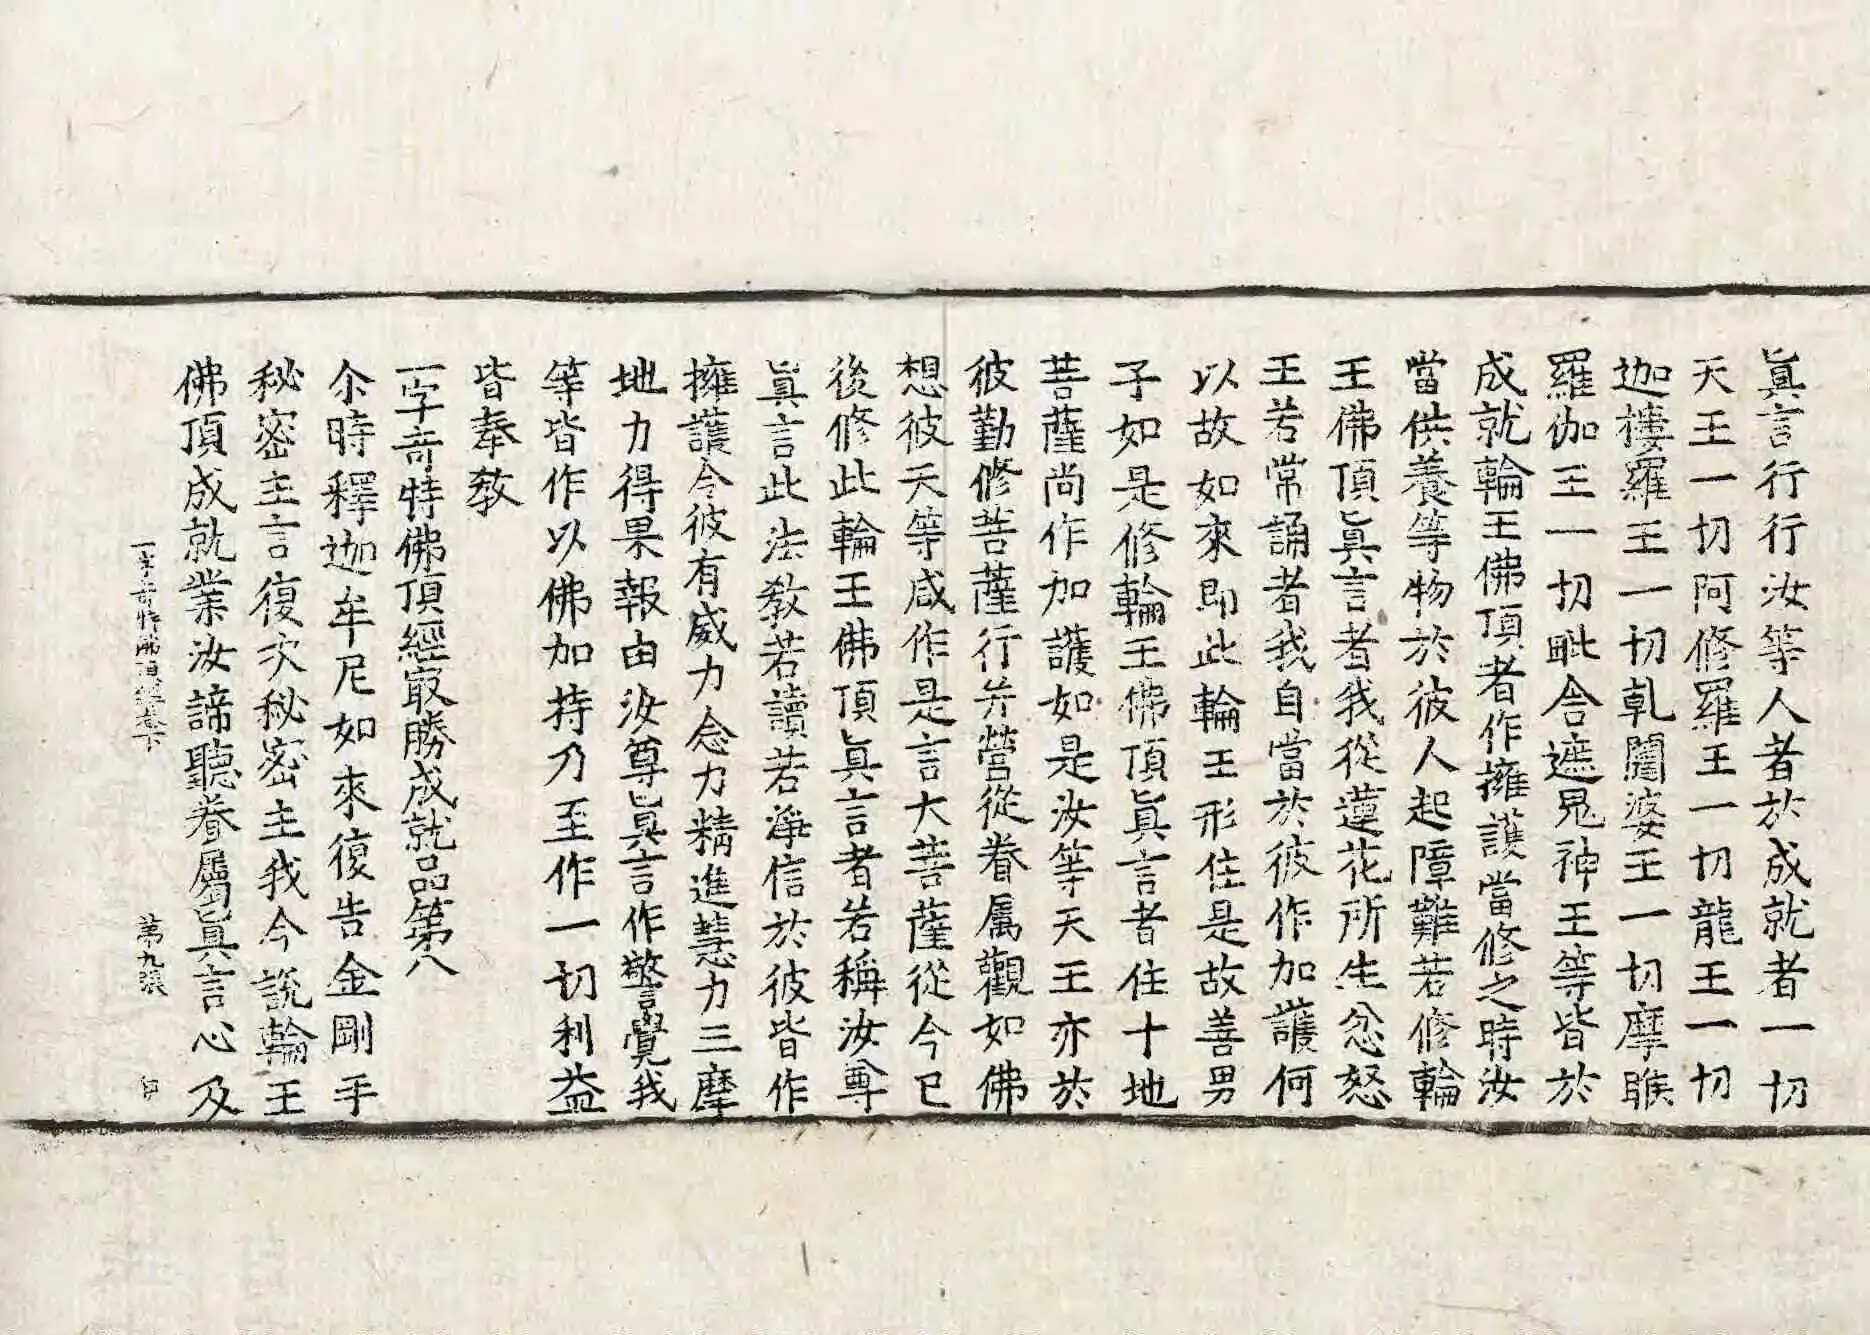 眞言行行汝等人者於成就者一切
天王一切阿修羅王一切龍王一切
迦樓羅王一切乹闥婆王一切摩睺
羅伽王一切毗舍遮鬼神王等皆於
成就輪王佛頂者作擁護當修之時汝
當供養等物於彼人起障難若修輪
王佛頂眞言者我從蓮花所生忿怒
王若常誦者我自當於彼作加護何
以故如來即此輪王形住是故善男
子如是修輪王佛頂眞言者住十地
菩薩尚作加護如是汝等天王亦於
彼勤修菩薩行并營從眷属觀如佛
想彼天等咸作是言大菩薩從今已
後修此輪王佛頂眞言者若稱汝尊
眞言此法教若讀若淨信於彼皆作
擁護令彼有威力念力精進慧力三摩
地力得果報由汝尊眞言作警覺我
等皆作以佛加持乃至作一切利益
皆奉教
一字奇特佛頂經㝡勝成就品第八
尒時釋迦牟尼如來復告金剛手
秘密主言復次秘密主我今說輪王
佛頂成就業汝諦聽眷屬眞言心及
一字奇特佛頂經卷下 第九張